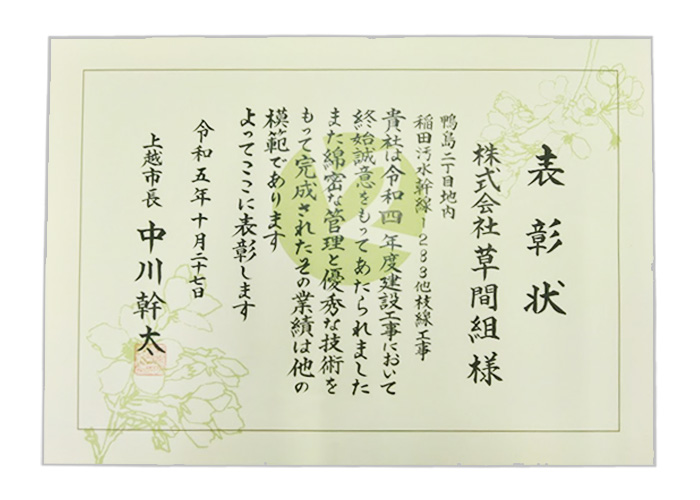 表彰状
株式会社草間組様
鴨島二丁目地内
稲田汚水幹線1-283他枝線工事
貴社は令和四年度建設工事において
終始誠意をもってあたられました
また綿密な管理と優秀な技術を
もって完成されたその業績は他の
模範であります
よってここに表彰します
令和五年十月二十七日
上越市長 中川幹太